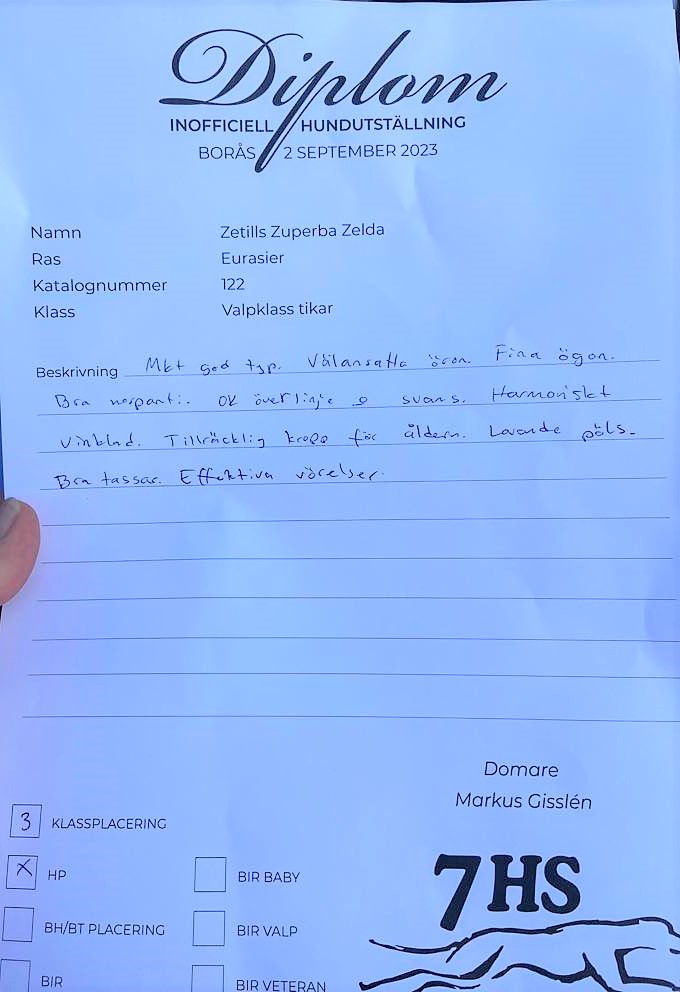 Diplom
INOFFICIELL HUNDUTSTÄLLNING
BORÅS 2 SEPTEMBER 2023
Namn Zetills Zuperba Zelda
Ras Eurasier
Katalognummer 122
Klass Valpklass tikar
Beskrivning Mkt god typ. Välansatta öron. Fina ögon.
Bra nosparti. OK överlinje o svans. Harmoniskt
vinklad. Tillräcklig kropp för åldern. Lovande päls.
Bra tassar. Effektiva rörelser.
Domare
Markus Gisslén
3 KLASSPLACERING
X HP BIR BABY
7HS
BH/BT PLACERING BIR VALP
BIR BIR VETERAN